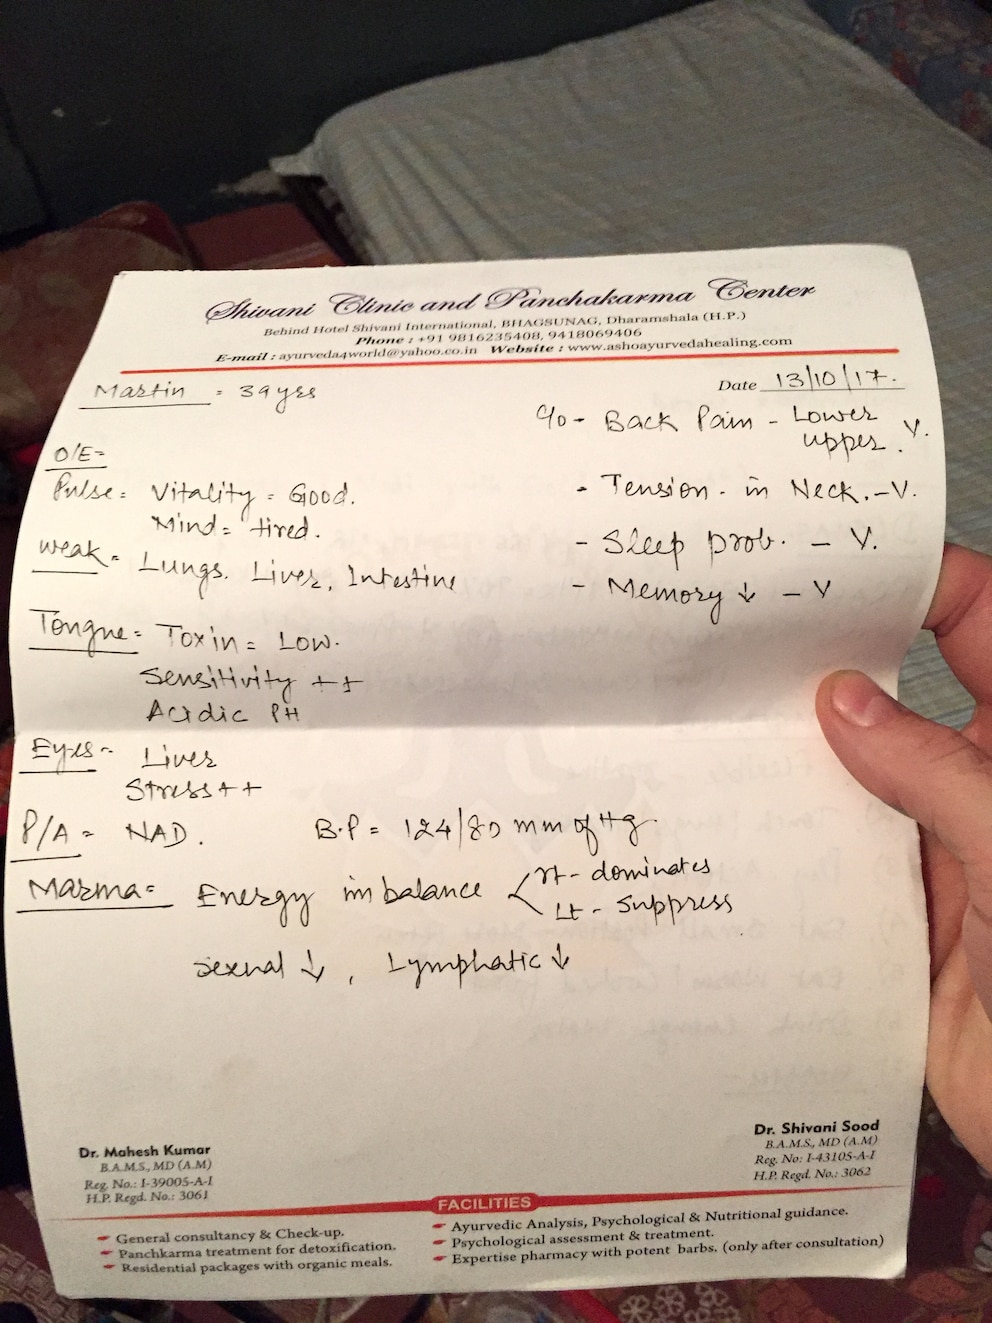 Shivani Clinic and Panchakarma Center
Behind Hotel Shivani International, BHAGSUNAG, Dharamshala (H.P.)
Phone : +91 9816235408, 9418069406
E-mail : ayurveda4world@yahoo.co.in Website : www.ashoayurvedahealing.com
Martin = 39 yrs
Date 13/10/17.
c/o - Back Pain - Lower
upper. V.
- Tension - in Neck. - V.
- Sleep prob. - V.
- Memory ↓ - V
O/E =
Pulse = Vitality = Good.
Mind = tired.
Weak = Lungs. Liver, Intestine
Tongue = Toxin = Low.
Sensitivity ++
Acidic PH
Eyes - Liver
Stress ++
P/A = NAD. B.P = 124/80 mm of Hg.
Marma = Energy imbalance < rt - dominates
Lt - Suppress
Sexual ↓, Lymphatic ↓
Dr. Mahesh Kumar
B.A.M.S., MD (A.M)
Reg. No.: I-39005-A-I
H.P. Regd. No.: 3061
Dr. Shivani Sood
B.A.M.S., MD (A.M)
Reg. No: I-43105-A-I
H.P. Regd. No.: 3062
FACILITIES
General consultancy & Check-up.
Panchkarma treatment for detoxification.
Residential packages with organic meals.
Ayurvedic Analysis, Psychological & Nutritional guidance.
Psychological assessment & treatment.
Expertise pharmacy with potent barbs. (only after consultation)